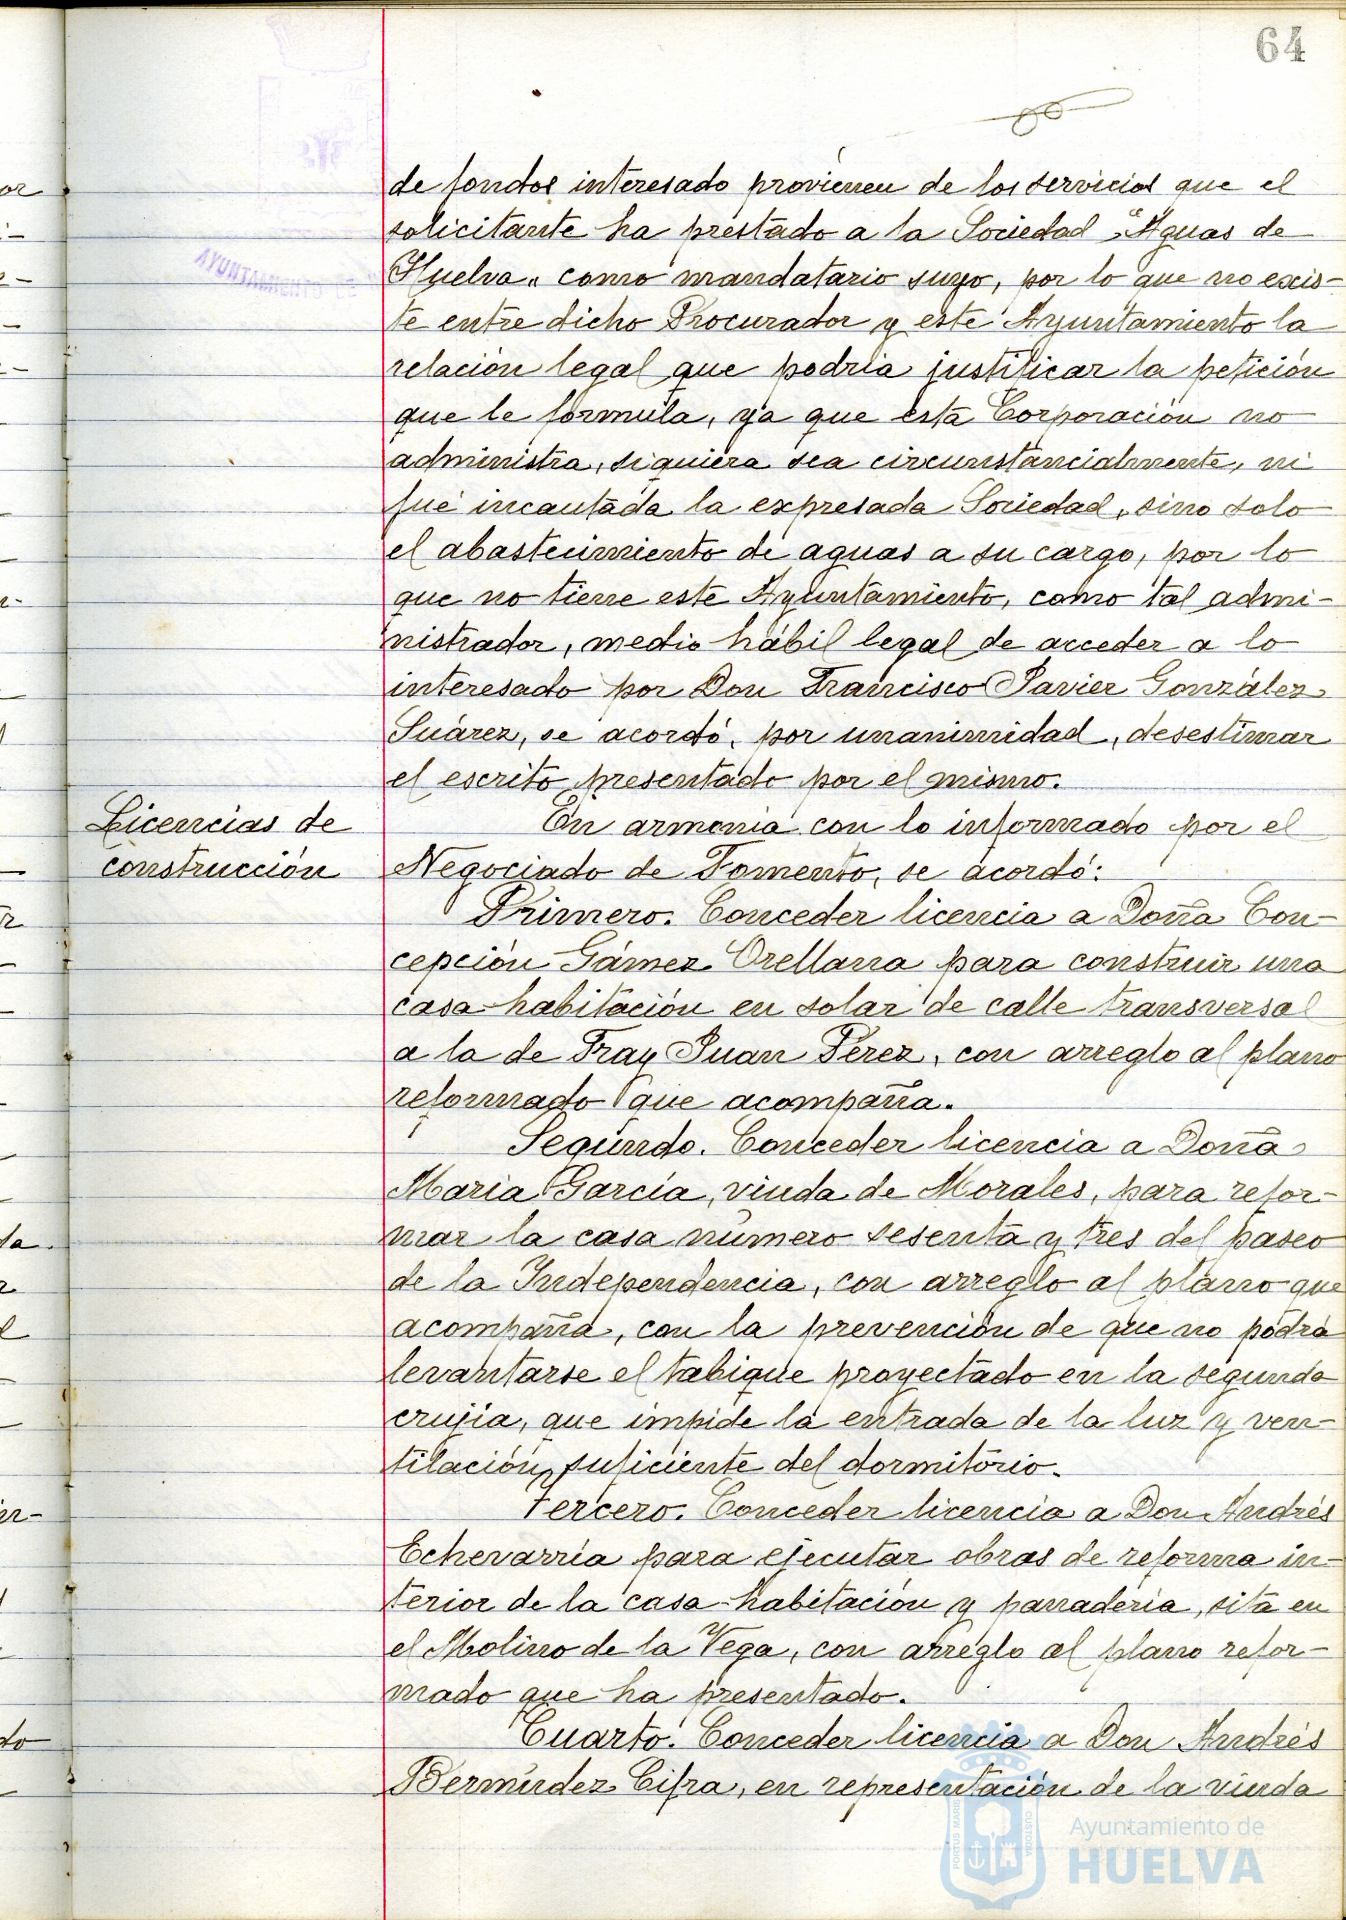 64
de fondos interesado provienen de los servicios que el
solicitante ha prestado a la Sociedad "Aguas de
Huelva" como mandatario suyo, por lo que no exis-
te entre dicho Procurador y este Ayuntamiento la
relación legal que podría justificar la petición
que le formula, ya que esta Corporación no
administra, siquiera sea circunstancialmente, ni
fué incautada la expresada Sociedad, sino solo
el abastecimiento de aguas a su cargo, por lo
que no tiene este Ayuntamiento, como tal admi-
nistrador, medio hábil legal de acceder a lo
interesado por Don Francisco Javier González
Suárez, se acordó, por unanimidad, desestimar
el escrito presentado por el mismo.
Licencias de
construcción
En armonía con lo informado por el
Negociado de Fomento, se acordó:
Primero. Conceder licencia a Doña Con-
cepción Gámez Orellana para construir una
casa-habitación en solar de calle transversal
a la de Fray Juan Pérez, con arreglo al plano
reformado que acompaña.
Segundo. Conceder licencia a Doña
María García, viuda de Morales, para refor-
mar la casa número sesenta y tres del paseo
de la Independencia, con arreglo al plano que
acompaña, con la prevención de que no podrá
levantarse el tabique proyectado en la segunda
crujía, que impide la entrada de la luz y ven-
tilación suficiente del dormitorio.
Tercero. Conceder licencia a Don Andrés
Echevarría para ejecutar obras de reforma in-
terior de la casa-habitación y panadería, sita en
el Molino de la Vega, con arreglo al plano refor-
mado que ha presentado.
Cuarto. Conceder licencia a Don Andrés
Bermúdez Cifra, en representación de la viuda
AYUNTAMIENTO DE
PORTUS MARIS
CUSTODIA
Ayuntamiento de
HUELVA